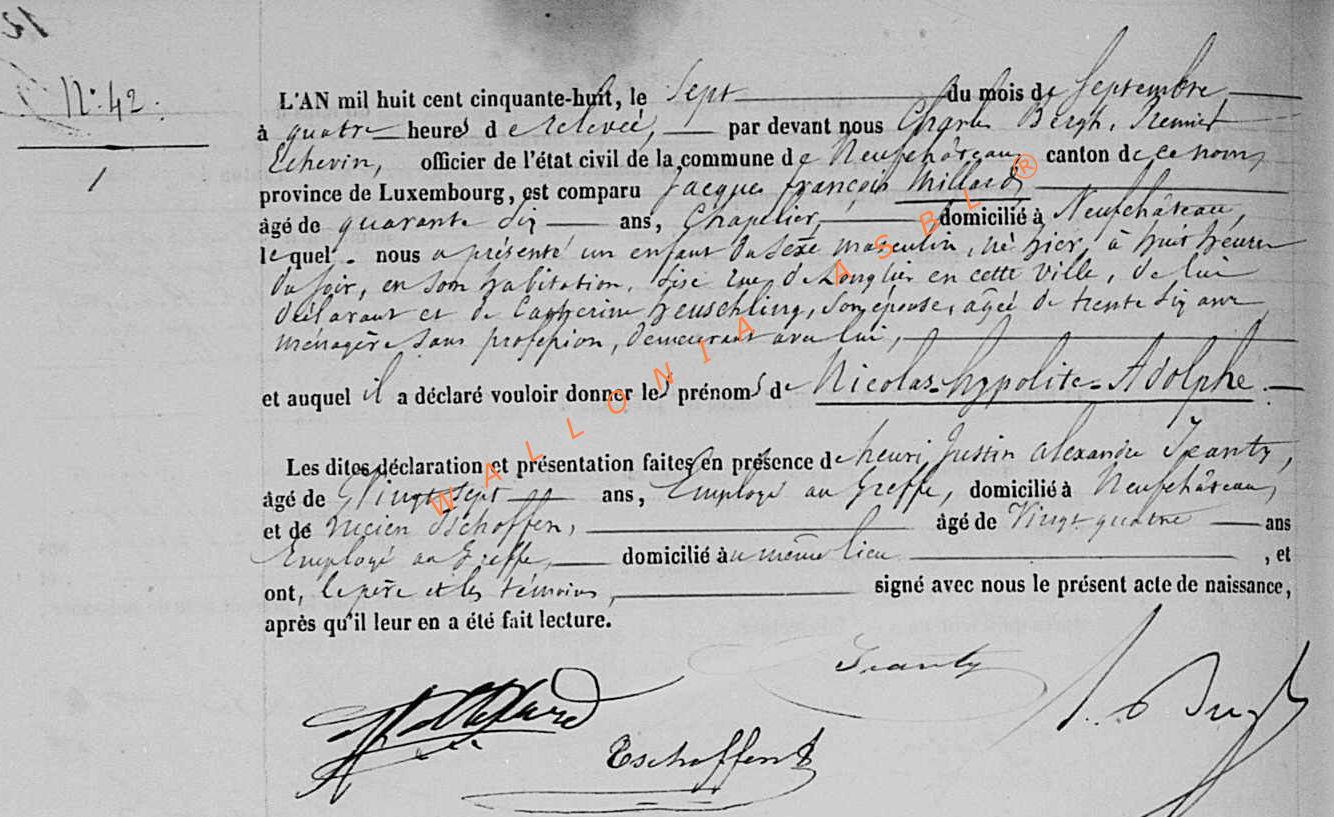 N° 42.
1
L'AN mil huit cent cinquante-huit, le Sept du mois de Septembre
à quatre heures de relevée, par devant nous Charles Bergh, Premier
Echevin, officier de l'état civil de la commune de Neufchâteau, canton de ce nom,
province de Luxembourg, est comparu Jacques françois Millard,
âgé de quarante Six ans, Chapelier, domicilié à Neufchâteau,
lequel nous a présenté un enfant du sexe masculin, né hier, à huit heures
du soir, en son habitation, sise rue de Longlier en cette ville, de lui
déclarant et de Catherine heuschling, son épouse, agée de trente Six ans
ménagère sans profession, demeurant avec lui,
et auquel il a déclaré vouloir donner les prénoms de Nicolas-hypolite-Adolphe.
Les dites déclaration et présentation faites en présence de henri Justin alexandre Jeanty,
âgé de Vingt Sept ans, Employé au Greffe, domicilié à Neufchâteau,
et de Lucien Tschoffen, âgé de Vingt quatre ans
Employé au Greffe, domicilié au même lieu , et
ont, le père et les témoins, signé avec nous le présent acte de naissance,
après qu'il leur en a été fait lecture.
Jeanty
Tschoffen
WALLONIA ASBL ®